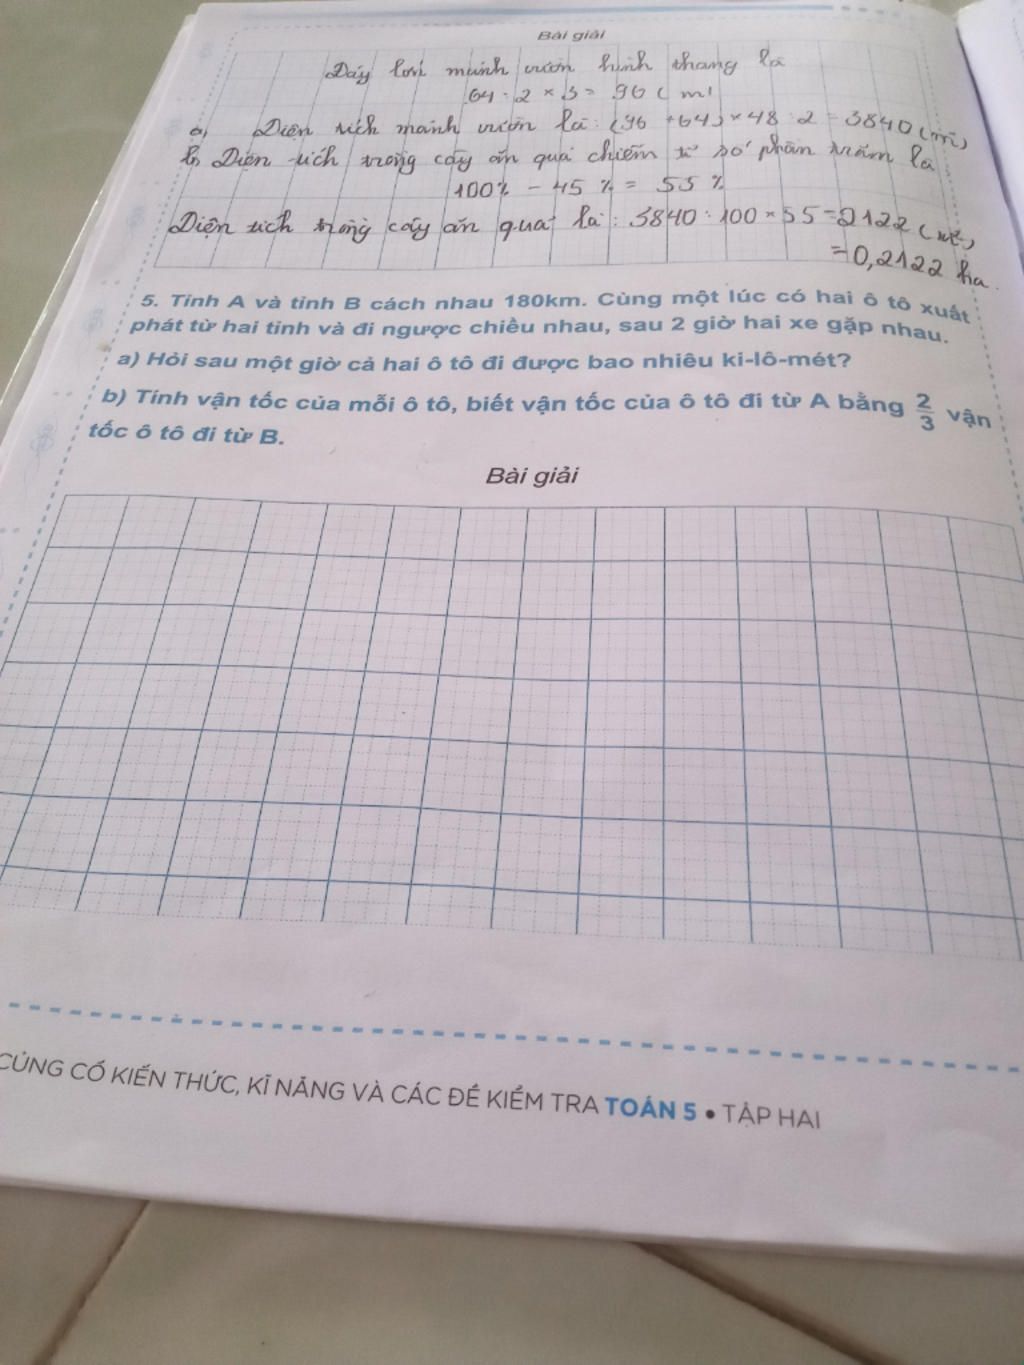 Bài giải
Đáy lớn mảnh vườn hình thang là
64 : 2 × 3 = 96 ( m )
a, Diện tích mảnh vườn là : (96 + 64) × 48 : 2 = 3840 (m²)
b, Diện tích trồng cây ăn quả chiếm tỉ số phần trăm là
100% - 45 % = 55 %
Diện tích trồng cây ăn quả là : 3840 : 100 × 55 = 2122 ( m²)
= 0,2122 ha
5. Tỉnh A và tỉnh B cách nhau 180km. Cùng một lúc có hai ô tô xuất
phát từ hai tỉnh và đi ngược chiều nhau, sau 2 giờ hai xe gặp nhau.
a) Hỏi sau một giờ cả hai ô tô đi được bao nhiêu ki-lô-mét?
b) Tính vận tốc của mỗi ô tô, biết vận tốc của ô tô đi từ A bằng 2/3 vận
tốc ô tô đi từ B.
Bài giải
CỦNG CỐ KIẾN THỨC, KĨ NĂNG VÀ CÁC ĐỀ KIỂM TRA TOÁN 5 • TẬP HAI